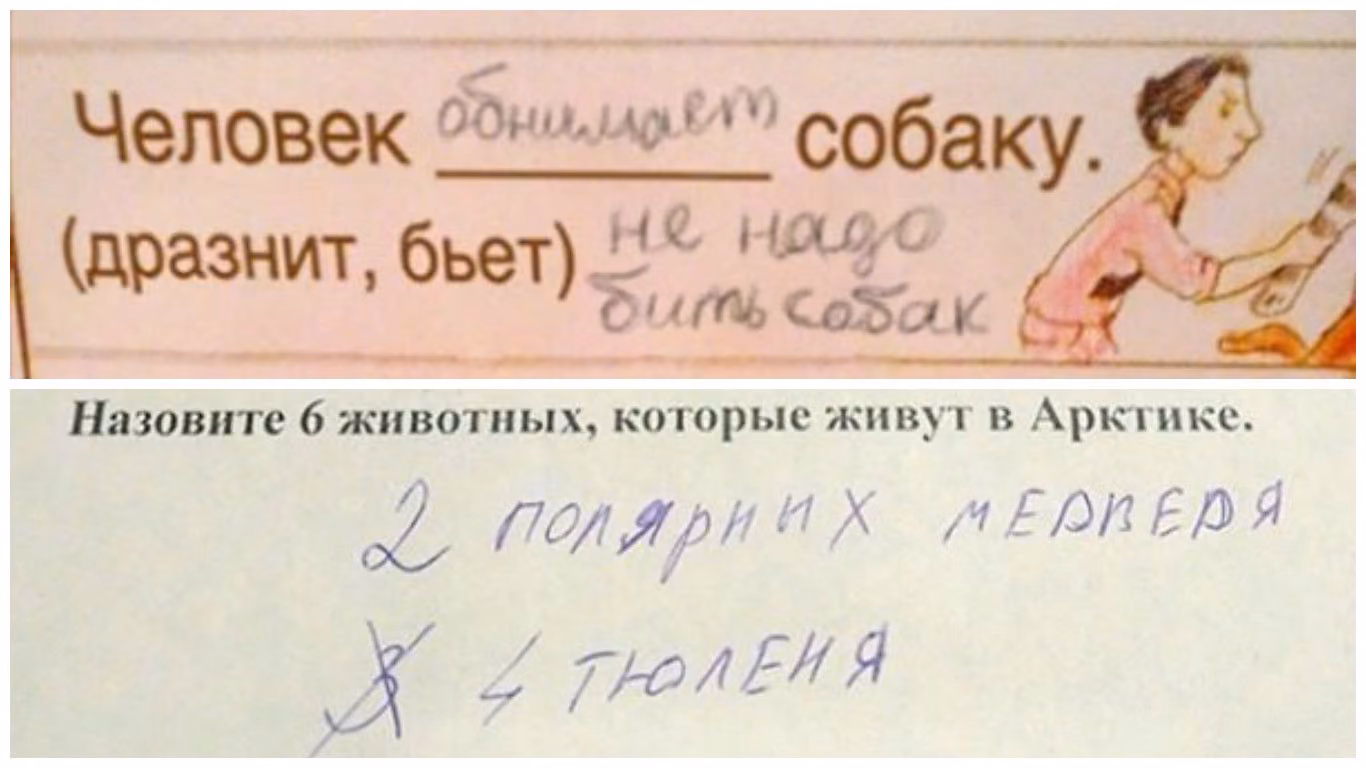 Человек обнимает собаку.
(дразнит, бьет) не надо
бить собак
Назовите 6 животных, которые живут в Арктике.
2 полярных медведя
4 тюленя